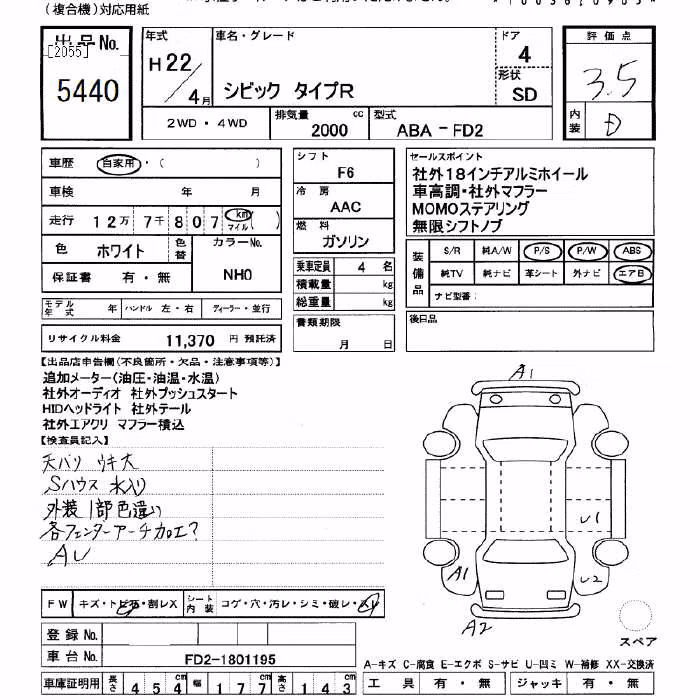 (複合機)対応用紙
出品No. [2055] 5440
年式 H22/4月
車名・グレード シビック タイプR
ドア 4
形状 SD
評価点 3.5
内装 D
2WD・4WD
排気量 2000 cc
型式 ABA-FD2
車歴 自家用・( )
車検 年 月
走行 12万7千807 km マイル ( )
色 ホワイト 色替 カラーNo. NH0
保証書 有・無
モデル年式 年 ハンドル 左・右 ディーラー・並行
リサイクル料金 11,370 円 預託済
シフト F6
冷房 AAC
燃料 ガソリン
乗車定員 4 名
積載量 kg
総重量 kg
書類期限
月 日
セールスポイント
社外18インチアルミホイール
車高調・社外マフラー
MOMOステアリング
無限シフトノブ
装備品 S/R 純A/W P/S P/W ABS
純TV 純ナビ 革シート 外ナビ エアB
ナビ型番:
後日品
【出品店申告欄(不良箇所・欠品・注意事項等)】
追加メーター(油圧・油温・水温)
社外オーディオ 社外プッシュスタート
HIDヘッドライト 社外テール
社外エアクリ マフラー積込
【検査員記入】
天バリ ウキ大
Sハウス 水入り
外装1部色違い
各フェンダーアーチ加工?
AU
A1
U1
A1
U2
A2
スペア
FW キズ・トビ石・割レX シート内装 コゲ・穴・汚レ・シミ・破レ・スレ
登録No.
車台No. FD2-1801195
車庫証明用 長さ 454 cm 幅 177 cm 高さ 143 cm
A-キズ C-腐食 E-エクボ S-サビ U-凹ミ W-補修 XX-交換済
工具 有・無 ジャッキ 有・無